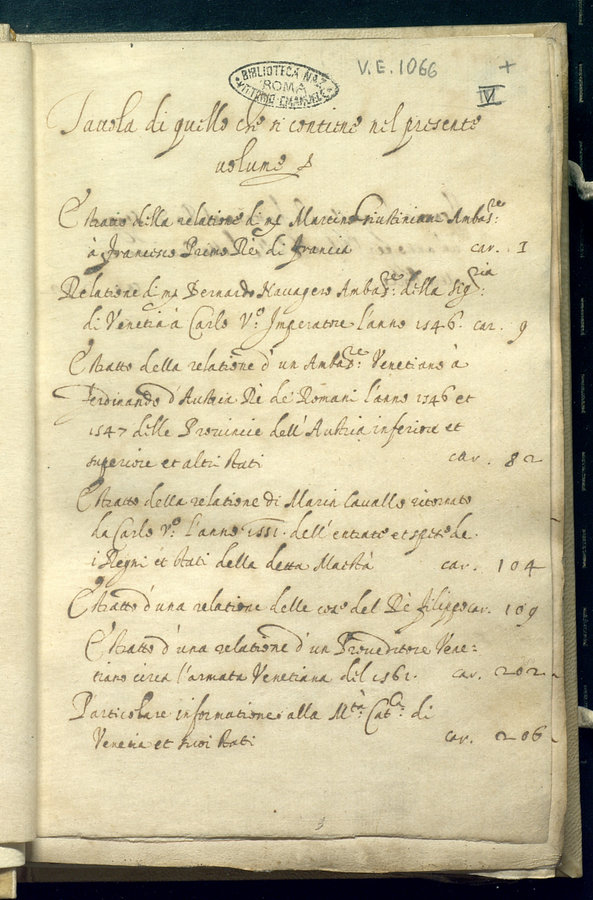 V.E. 1066
+
IV
BIBLIOTECA NAZ.
ROMA
VITTORIO EMANUELE
Tavola di quello che si contiene nel presente
volume
Estratto della relatione di mr Martino Giustiniani Ambasre:
à Francesco Primo Rè di Francia car. 1
Relatione di mr Bernardo Navagero Ambasre: della Sigria:
di Venetia à Carlo Vo. Imperatore l'anno 1546. car. 9
Estratto della relatione d'un Ambasre: Venetiano à
Ferdinando d'Austria Rè de' Romani l'anno 1546 et
1547 delle Provincie dell'Austria inferiore et
superiore et altri stati car. 82
Estratto della relatione di Marin Cavallo ritornato
da Carlo Vo. l'anno 1551. dell'entrate et spese de
i Regni et stati della detta Maestà car. 104
Estratto d'una relatione delle cose del Rè Filippo car. 109
Estratto d'una relatione d'un Proveditore Vene=
tiano circa l'armata Venetiana del 1561. car. 202
Particolare informatione alla Mtà: Catca: di
Venetia et suoi stati car. 206